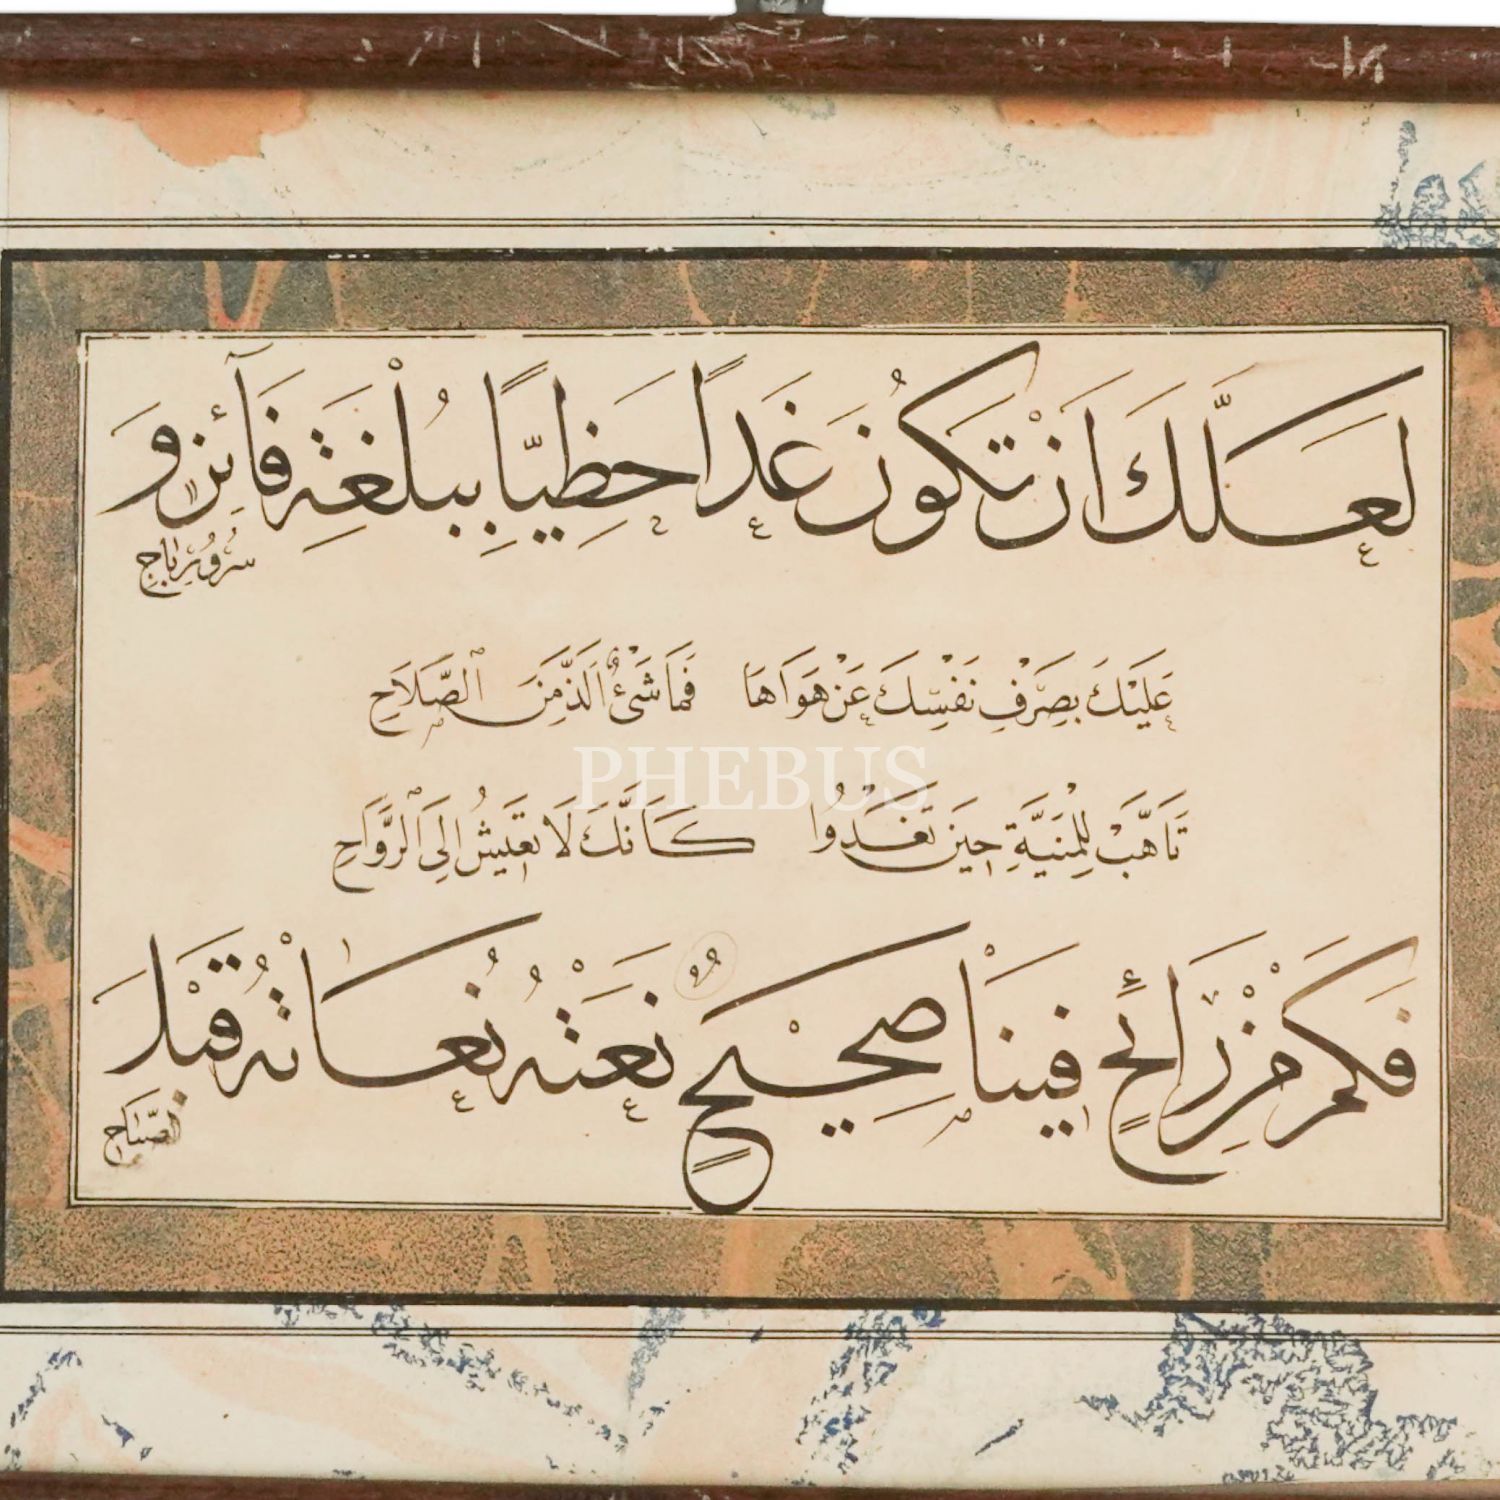 لَعَلَّكَ اَنْ تَكُونَ غَدًا حَظِيًّا بِبُلْغَةِ فَآئِزٍ وَ
سُرُورِ نَاجٍ
عَلَيْكَ بِصَرْفِ نَفْسِكَ عَنْ هَوَاهَا فَمَا شَىْءٌ اَلَذَّ مِنَ الصَّلَاحِ
PHEBUS
تَاَهَّبْ لِلْمَنِيَّةِ حِينَ تَغْدُوا كَاَنَّكَ لَا تَعِيشُ اِلَى الرَّوَاحِ
فَكَمْ مِنْ رَائِحٍ فِينَا صَحِيحٍ نَعَتْهُ نُعَاتُهُ قَبْلَ
الصَّبَاحِ